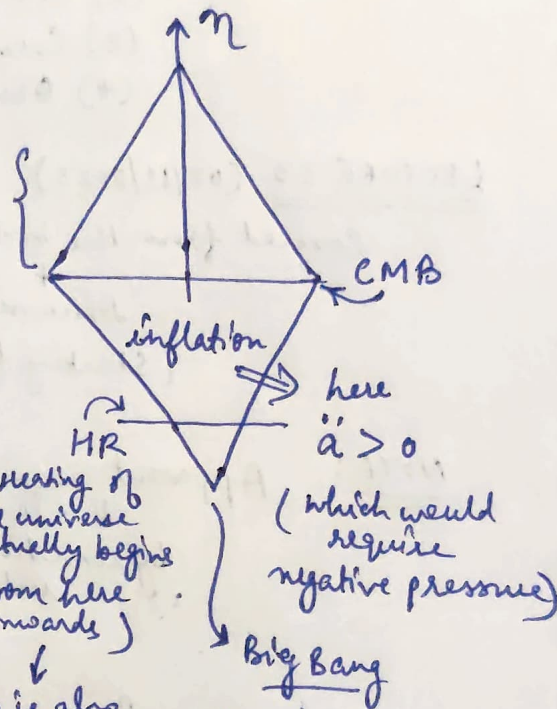 η
CMB
inflation
here
ä > 0
(which would
require
negative pressure)
HR
heating of
universe
actually begins
from here
onwards)
Big Bang
is also